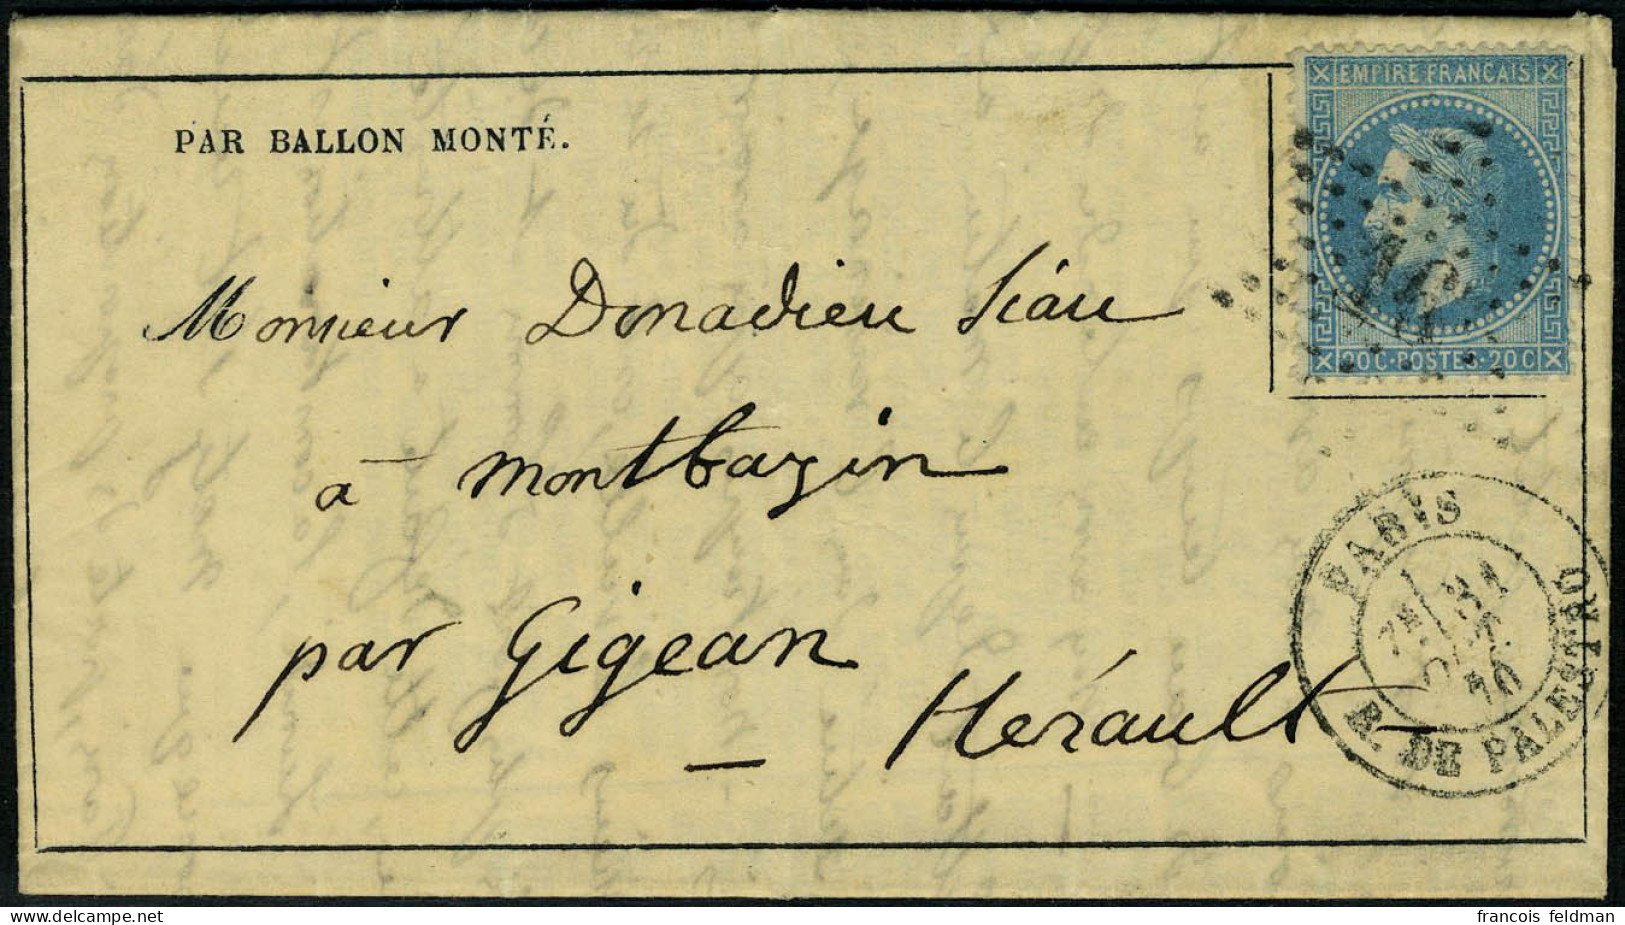 PAR BALLON MONTÉ.
EMPIRE FRANCAIS
16
20C·POSTES·20C
Monsieur Donadieu Siau
à Montbazin
par Gigean
Hérault
PARIS
7E 31
OCT.
70
R. DE PALESTRO
francois feldman